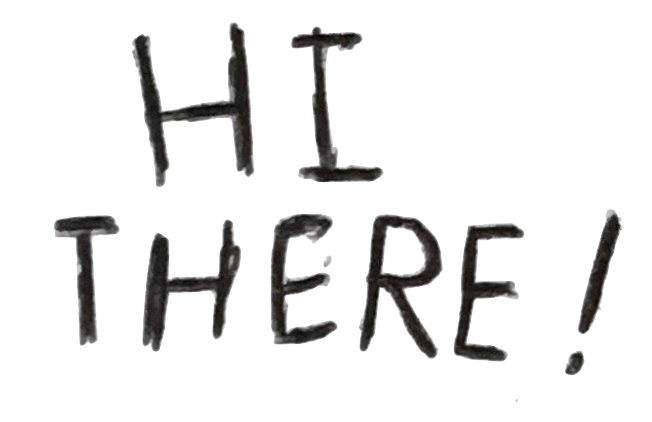 HI
THERE!